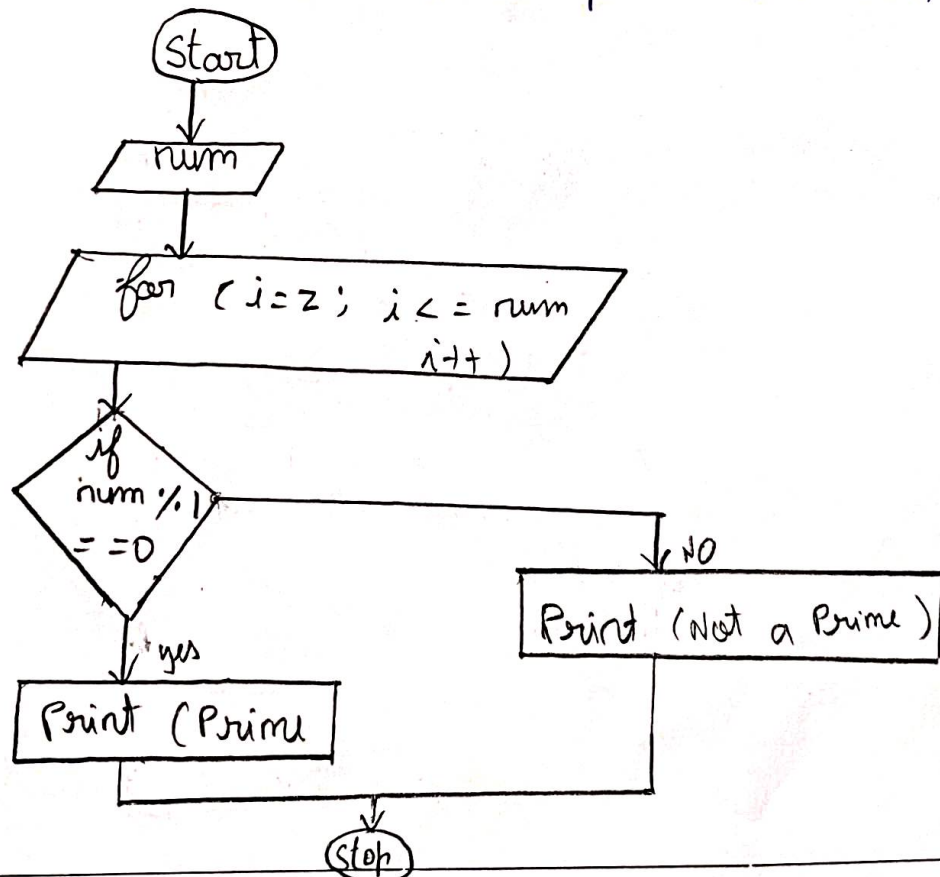 Start
num
for (i=2; i<= num
i++)
if
num %1
= =0
NO
Print (Not a Prime)
yes
Print (Prime
Stop